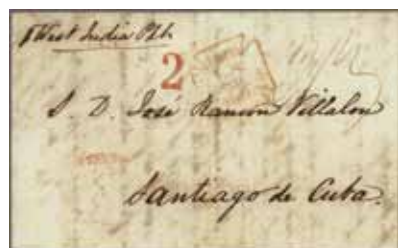 West India Pkt
2
S. D. José Ramon Villalon
Santiago de Cuba.